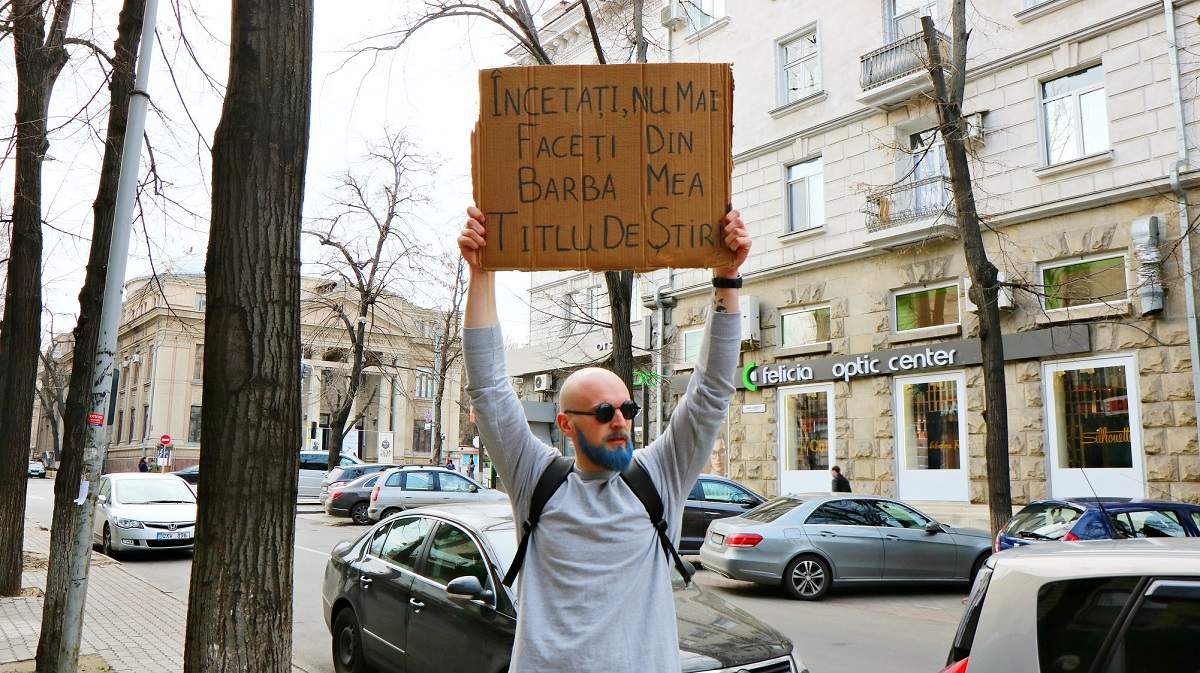 ÎNCETAȚI, NU MAI
FACEȚI DIN
BARBA MEA
TITLU DE ȘTIRI
felicia optic center
Silhouette